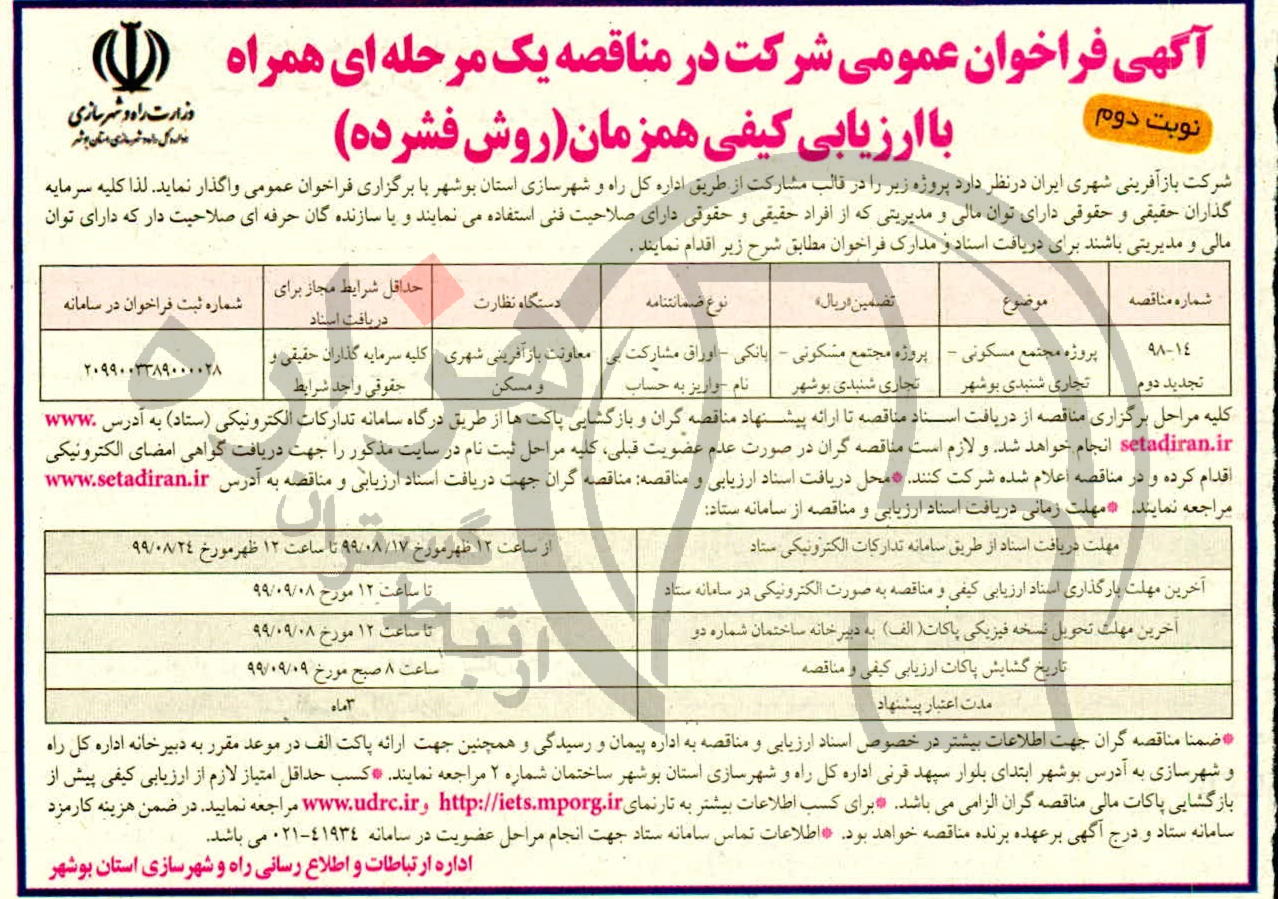 آگهی فراخوان عمومی شرکت در مناقصه یک مرحله ای همراه
با ارزیابی کیفی همزمان(روش فشرده)
نوبت دوم
وزارت راه و شهرسازی
اداره کل راه و شهرسازی استان بوشهر
شرکت بازآفرینی شهری ایران درنظر دارد پروژه زیر را در قالب مشارکت از طریق اداره کل راه و شهرسازی استان بوشهر با برگزاری فراخوان عمومی واگذار نماید. لذا کلیه سرمایه
گذاران حقیقی و حقوقی دارای توان مالی و مدیریتی که از افراد حقیقی و حقوقی دارای صلاحیت فنی استفاده می نمایند و یا سازنده گان حرفه ای صلاحیت دار که دارای توان
مالی و مدیریتی باشند برای دریافت اسناد و مدارک فراخوان مطابق شرح زیر اقدام نمایند .
شماره مناقصه موضوع تضمین«ریال» نوع ضمانتنامه دستگاه نظارت حداقل شرایط مجاز برای دریافت اسناد شماره ثبت فراخوان در سامانه
۹۸-۱٤ تجدید دوم پروژه مجتمع مسکونی – تجاری شنبدی بوشهر پروژه مجتمع مسکونی – تجاری شنبدی بوشهر بانکی –اوراق مشارکت بی نام –واریز به حساب معاونت بازآفرینی شهری و مسکن کلیه سرمایه گذاران حقیقی و حقوقی واجد شرایط ۲۰۹۹۰۰۳۳۸۹۰۰۰۰۲۸
کلیه مراحل برگزاری مناقصه از دریافت اسناد مناقصه تا ارائه پیشنهاد مناقصه گران و بازگشایی پاکت ها از طریق درگاه سامانه تدارکات الکترونیکی (ستاد) به آدرس www.
setadiran.ir انجام خواهد شد. و لازم است مناقصه گران در صورت عدم عضویت قبلی، کلیه مراحل ثبت نام در سایت مذکور را جهت دریافت گواهی امضای الکترونیکی
اقدام کرده و در مناقصه اعلام شده شرکت کنند. *محل دریافت اسناد ارزیابی و مناقصه: مناقصه گران جهت دریافت اسناد ارزیابی و مناقصه به آدرس www.setadiran.ir
مراجعه نمایند. *مهلت زمانی دریافت اسناد ارزیابی و مناقصه از سامانه ستاد:
مهلت دریافت اسناد از طریق سامانه تدارکات الکترونیکی ستاد از ساعت ۱۲ ظهرمورخ ۹۹/۰۸/۱۷ تا ساعت ۱۲ ظهرمورخ ۹۹/۰۸/۲٤
آخرین مهلت بارگذاری اسناد ارزیابی کیفی و مناقصه به صورت الکترونیکی در سامانه ستاد تا ساعت ۱۲ مورخ ۹۹/۰۹/۰۸
آخرین مهلت تحویل نسخه فیزیکی پاکات( الف) به دبیرخانه ساختمان شماره دو تا ساعت ۱۲ مورخ ۹۹/۰۹/۰۸
تاریخ گشایش پاکات ارزیابی کیفی و مناقصه ساعت ۸ صبح مورخ ۹۹/۰۹/۰۹
مدت اعتبار پیشنهاد ۳ماه
*ضمنا مناقصه گران جهت اطلاعات بیشتر در خصوص اسناد ارزیابی و مناقصه به اداره پیمان و رسیدگی و همچنین جهت ارائه پاکت الف در موعد مقرر به دبیرخانه اداره کل راه
و شهرسازی به آدرس بوشهر ابتدای بلوار سپهد قرنی اداره کل راه و شهرسازی استان بوشهر ساختمان شماره ۲ مراجعه نمایند. *کسب حداقل امتیاز لازم از ارزیابی کیفی پیش از
بازگشایی پاکات مالی مناقصه گران الزامی می باشد. *برای کسب اطلاعات بیشتر به تارنمای http://iets.mporg.ir و www.udrc.ir مراجعه نمایید. در ضمن هزینه کارمزد
سامانه ستاد و درج آگهی برعهده برنده مناقصه خواهد بود. *اطلاعات تماس سامانه ستاد جهت انجام مراحل عضویت در سامانه ۴۱۹۳۴-۰۲۱ می باشد.
اداره ارتباطات و اطلاع رسانی راه و شهرسازی استان بوشهر
هزاره
گستران
ارتباط